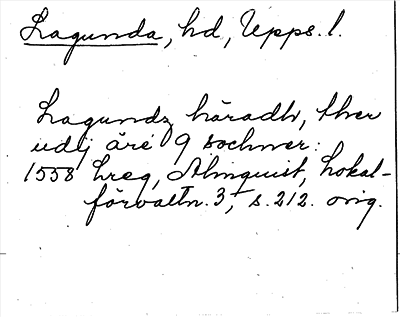 Lagunda, hd, Upps. l.
Lagundz häradh, ther
udj äre 9 sochner:
1558 hreg, Almquist, Lokal-
förvaltn. 3, s. 212. orig.